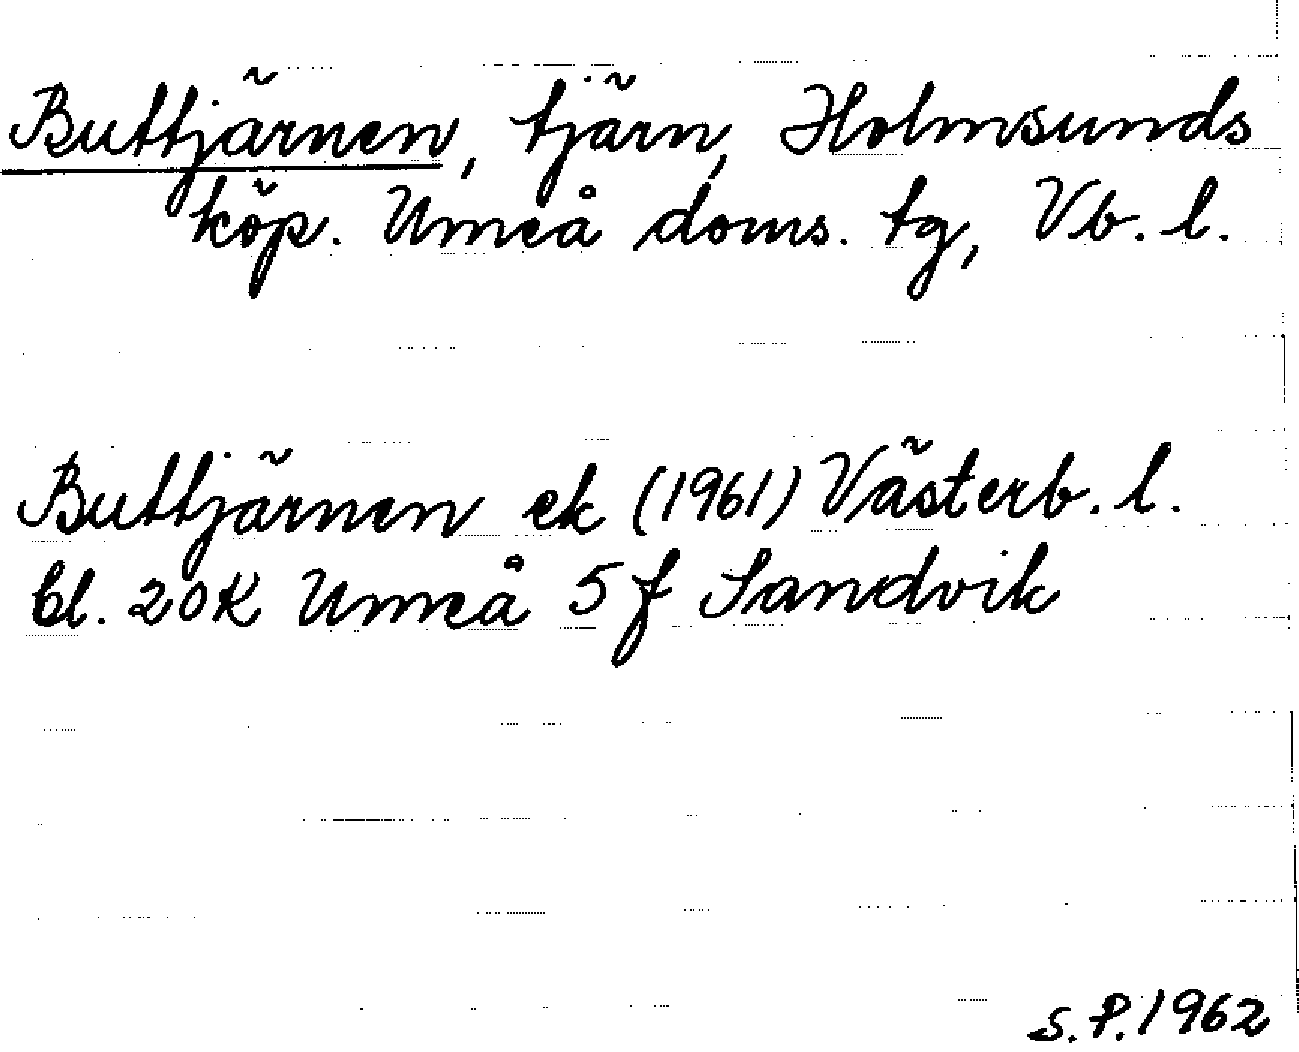 Buttjärnen, tjärn, Holmsunds
köp. Umeå doms. tg, Vb. l.
Buttjärnen ek (1961) Västerb. l.
bl. 20K Umeå 5f Sandvik
S.P. 1962